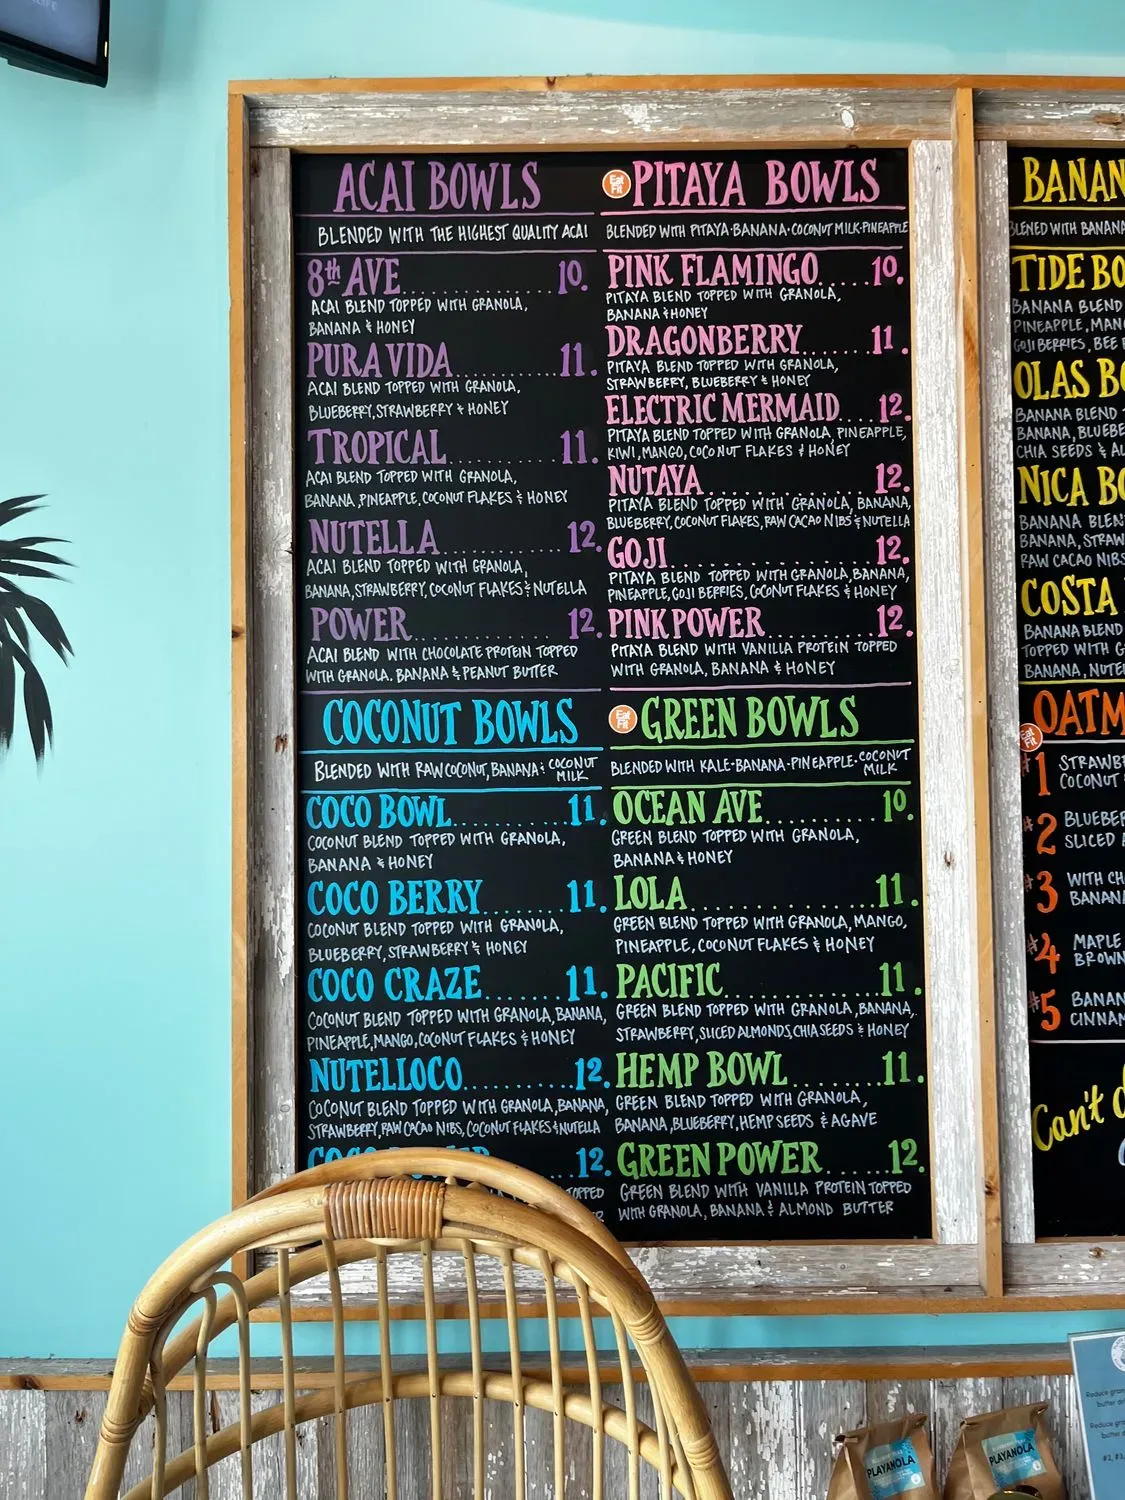 LIFE
ACAI BOWLS
BLENDED WITH THE HIGHEST QUALITY ACAI
8th AVE..............10.
ACAI BLEND TOPPED WITH GRANOLA,
BANANA & HONEY
PURA VIDA..........11.
ACAI BLEND TOPPED WITH GRANOLA,
BLUEBERRY, STRAWBERRY & HONEY
TROPICAL..........11.
ACAI BLEND TOPPED WITH GRANOLA,
BANANA, PINEAPPLE, COCONUT FLAKES & HONEY
NUTELLA..........12.
ACAI BLEND TOPPED WITH GRANOLA,
BANANA, STRAWBERRY, COCONUT FLAKES & NUTELLA
POWER..........12.
ACAI BLEND WITH CHOCOLATE PROTEIN TOPPED
WITH GRANOLA, BANANA & PEANUT BUTTER
COCONUT BOWLS
BLENDED WITH RAW COCONUT, BANANA & COCONUT MILK
COCO BOWL..........11.
COCONUT BLEND TOPPED WITH GRANOLA,
BANANA & HONEY
COCO BERRY........11.
COCONUT BLEND TOPPED WITH GRANOLA,
BLUEBERRY, STRAWBERRY & HONEY
COCO CRAZE.......11.
COCONUT BLEND TOPPED WITH GRANOLA, BANANA,
PINEAPPLE, MANGO, COCONUT FLAKES & HONEY
NUTELLOCO.........12.
COCONUT BLEND TOPPED WITH GRANOLA, BANANA,
STRAWBERRY, RAW CACAO NIBS, COCONUT FLAKES & NUTELLA
COCO ..12.
TOPPED
Eat Fit
PITAYA BOWLS
BLENDED WITH PITAYA·BANANA·COCONUT MILK·PINEAPPLE
PINK FLAMINGO.....10.
PITAYA BLEND TOPPED WITH GRANOLA,
BANANA & HONEY
DRAGONBERRY.......11.
PITAYA BLEND TOPPED WITH GRANOLA,
STRAWBERRY, BLUEBERRY & HONEY
ELECTRIC MERMAID....12.
PITAYA BLEND TOPPED WITH GRANOLA, PINEAPPLE,
KIWI, MANGO, COCONUT FLAKES & HONEY
NUTAYA..............12.
PITAYA BLEND TOPPED WITH GRANOLA, BANANA,
BLUEBERRY, COCONUT FLAKES, RAW CACAO NIBS & NUTELLA
GOJI..............12.
PITAYA BLEND TOPPED WITH GRANOLA, BANANA,
PINEAPPLE, GOJI BERRIES, COCONUT FLAKES & HONEY
PINK POWER.........12.
PITAYA BLEND WITH VANILLA PROTEIN TOPPED
WITH GRANOLA, BANANA & HONEY
Eat Fit
GREEN BOWLS
BLENDED WITH KALE·BANANA·PINEAPPLE·COCONUT MILK
OCEAN AVE..........10.
GREEN BLEND TOPPED WITH GRANOLA,
BANANA & HONEY
LOLA..............11.
GREEN BLEND TOPPED WITH GRANOLA, MANGO,
PINEAPPLE, COCONUT FLAKES & HONEY
PACIFIC...........11.
GREEN BLEND TOPPED WITH GRANOLA, BANANA,
STRAWBERRY, SLICED ALMONDS, CHIA SEEDS & HONEY
HEMP BOWL.......11.
GREEN BLEND TOPPED WITH GRANOLA,
BANANA, BLUEBERRY, HEMP SEEDS & AGAVE
GREEN POWER......12.
GREEN BLEND WITH VANILLA PROTEIN TOPPED
WITH GRANOLA, BANANA & ALMOND BUTTER
BANAN
BLENED WITH BANANA
TIDE BO
BANANA BLEND
PINEAPPLE, MAN
GOJI BERRIES, BEE
OLAS BO
BANANA BLEND
BANANA, BLUEBE
CHIA SEEDS & AL
NICA BO
BANANA BLEN
BANANA, STRAW
RAW CACAO NIBS
COSTA
BANANA BLEND
TOPPED WITH G
BANANA, NUTE
Eat Fit
OATM
#1 STRAWB
COCONUT
#2 BLUEBER
SLICED A
#3 WITH CH
BANANA
#4 MAPLE
BROWN
#5 BANAN
CINNAM
Can't d
Reduce gran
butter
Reduce gra
butter
#2, #3,
PLAYANOLA
PLAYANOLA